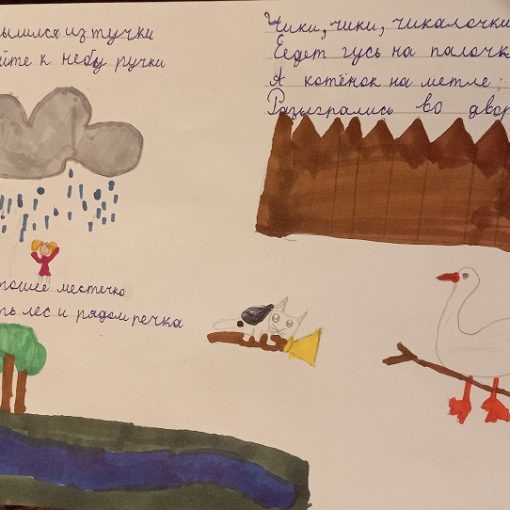 ылился из тучки
йте к небу ручки
Чики, чики, чикалочки
Едет гусь на палочк
А котёнок на метле:
Разыгрались во двор
рошее местечко
ть лес и рядом речка